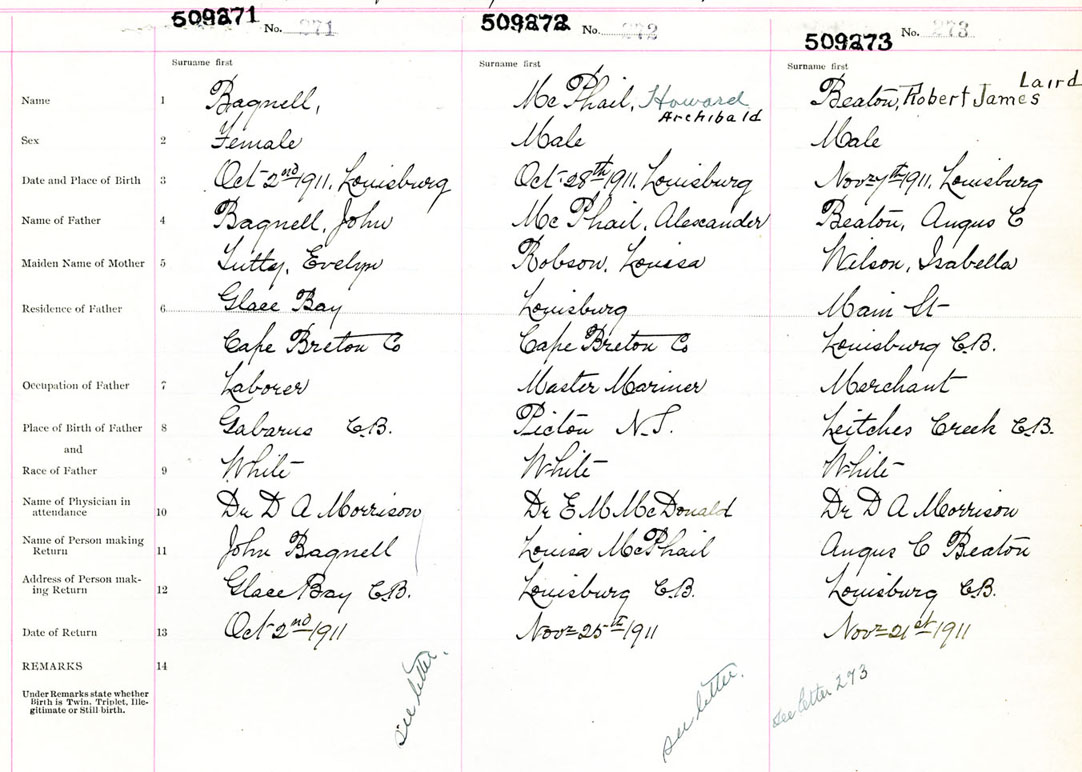 509271 No. 271 509272 No. 272 509273 No. 273
Surname first Surname first Surname first
Laird
Name 1 Bagnell, Mc Phail, Howard Beaton, Robert James
Archibald
Sex 2 Female Male Male
Date and Place of Birth 3 Oct 2nd 1911, Louisburg Oct. 28th 1911, Louisburg Nov 7th 1911, Louisburg
Name of Father 4 Bagnell, John Mc Phail, Alexander Beaton, Angus C
Maiden Name of Mother 5 Tutty, Evelyn Robson, Louisa Wilson, Isabella
Residence of Father 6 Glace Bay Louisburg Main St
Cape Breton Co Cape Breton Co Louisburg C.B.
Occupation of Father 7 Laborer Master Mariner Merchant
Place of Birth of Father 8 Gabarus C.B. Picton N.S. Leitches Creek C.B.
and
Race of Father 9 White White White
Name of Physician in
attendance 10 Dr D A Morrison Dr E M McDonald Dr D A Morrison
Name of Person making
Return 11 John Bagnell Louisa McPhail Angus C Beaton
Address of Person mak-
ing Return 12 Glace Bay C.B. Louisburg C.B. Louisburg C.B.
Date of Return 13 Oct 2nd 1911 Nov 25th 1911 Nov 21st 1911
REMARKS 14
see letter. see letter. see letter 273
Under Remarks state whether
Birth is Twin, Triplet, Ille-
gitimate or Still birth.